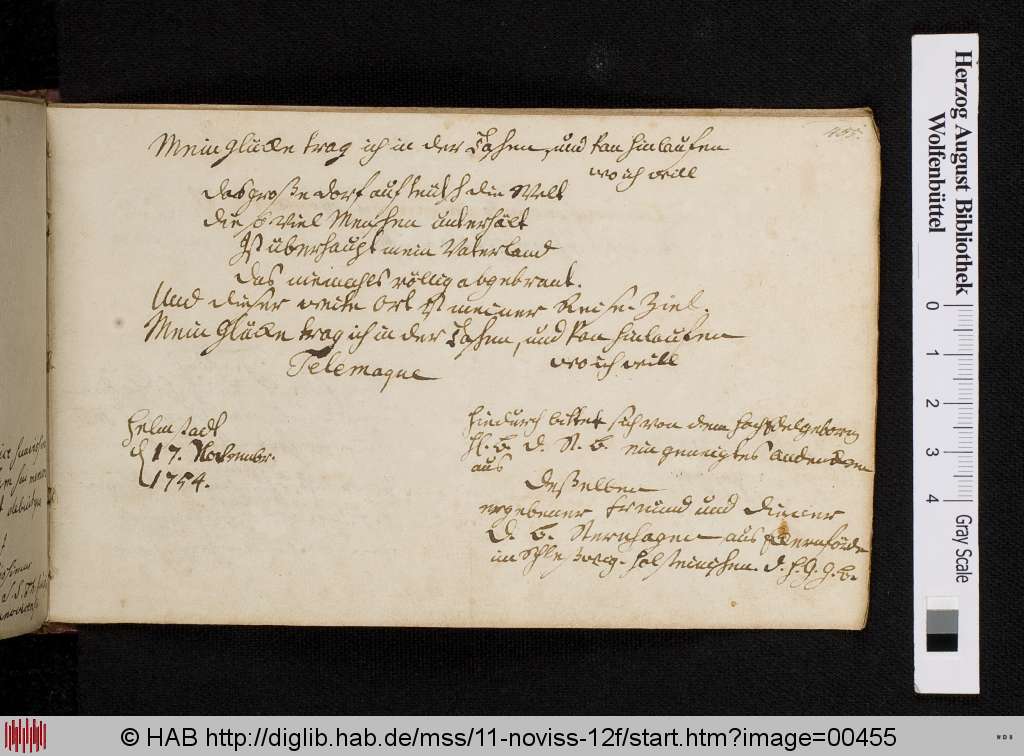 455.
Mein Glücke trag ich in der Tashen, und kan hinlaufen
wo ich will
das große dorf auf teutsch die Welt
die so viel Menshen unterhält
Ist überhaupt mein Vaterland
das niemahls völlig abgebrant.
Und dieser weite Ort ist meiner Reise Ziel.
Mein Glücke trag ich in der Tashen, und kan hinlaufen
wo ich will
Telemaque
Helmstadt
d 17. Novembr.
1754.
Hiedurch bittet sich von dem HochEdelgebohrn
H. B. d. St. B. ein geneigtes andencken
aus
deßelben
ergebener Freund und diener
Sternhagen aus Eckernförde
im Schleßwig-Holsteinshen. d. H. G. G. B.
Herzog August Bibliothek
Wolfenbüttel
0
1
2
3
4
Gray Scale
© HAB http://diglib.hab.de/mss/11-noviss-12f/start.htm?image=00455